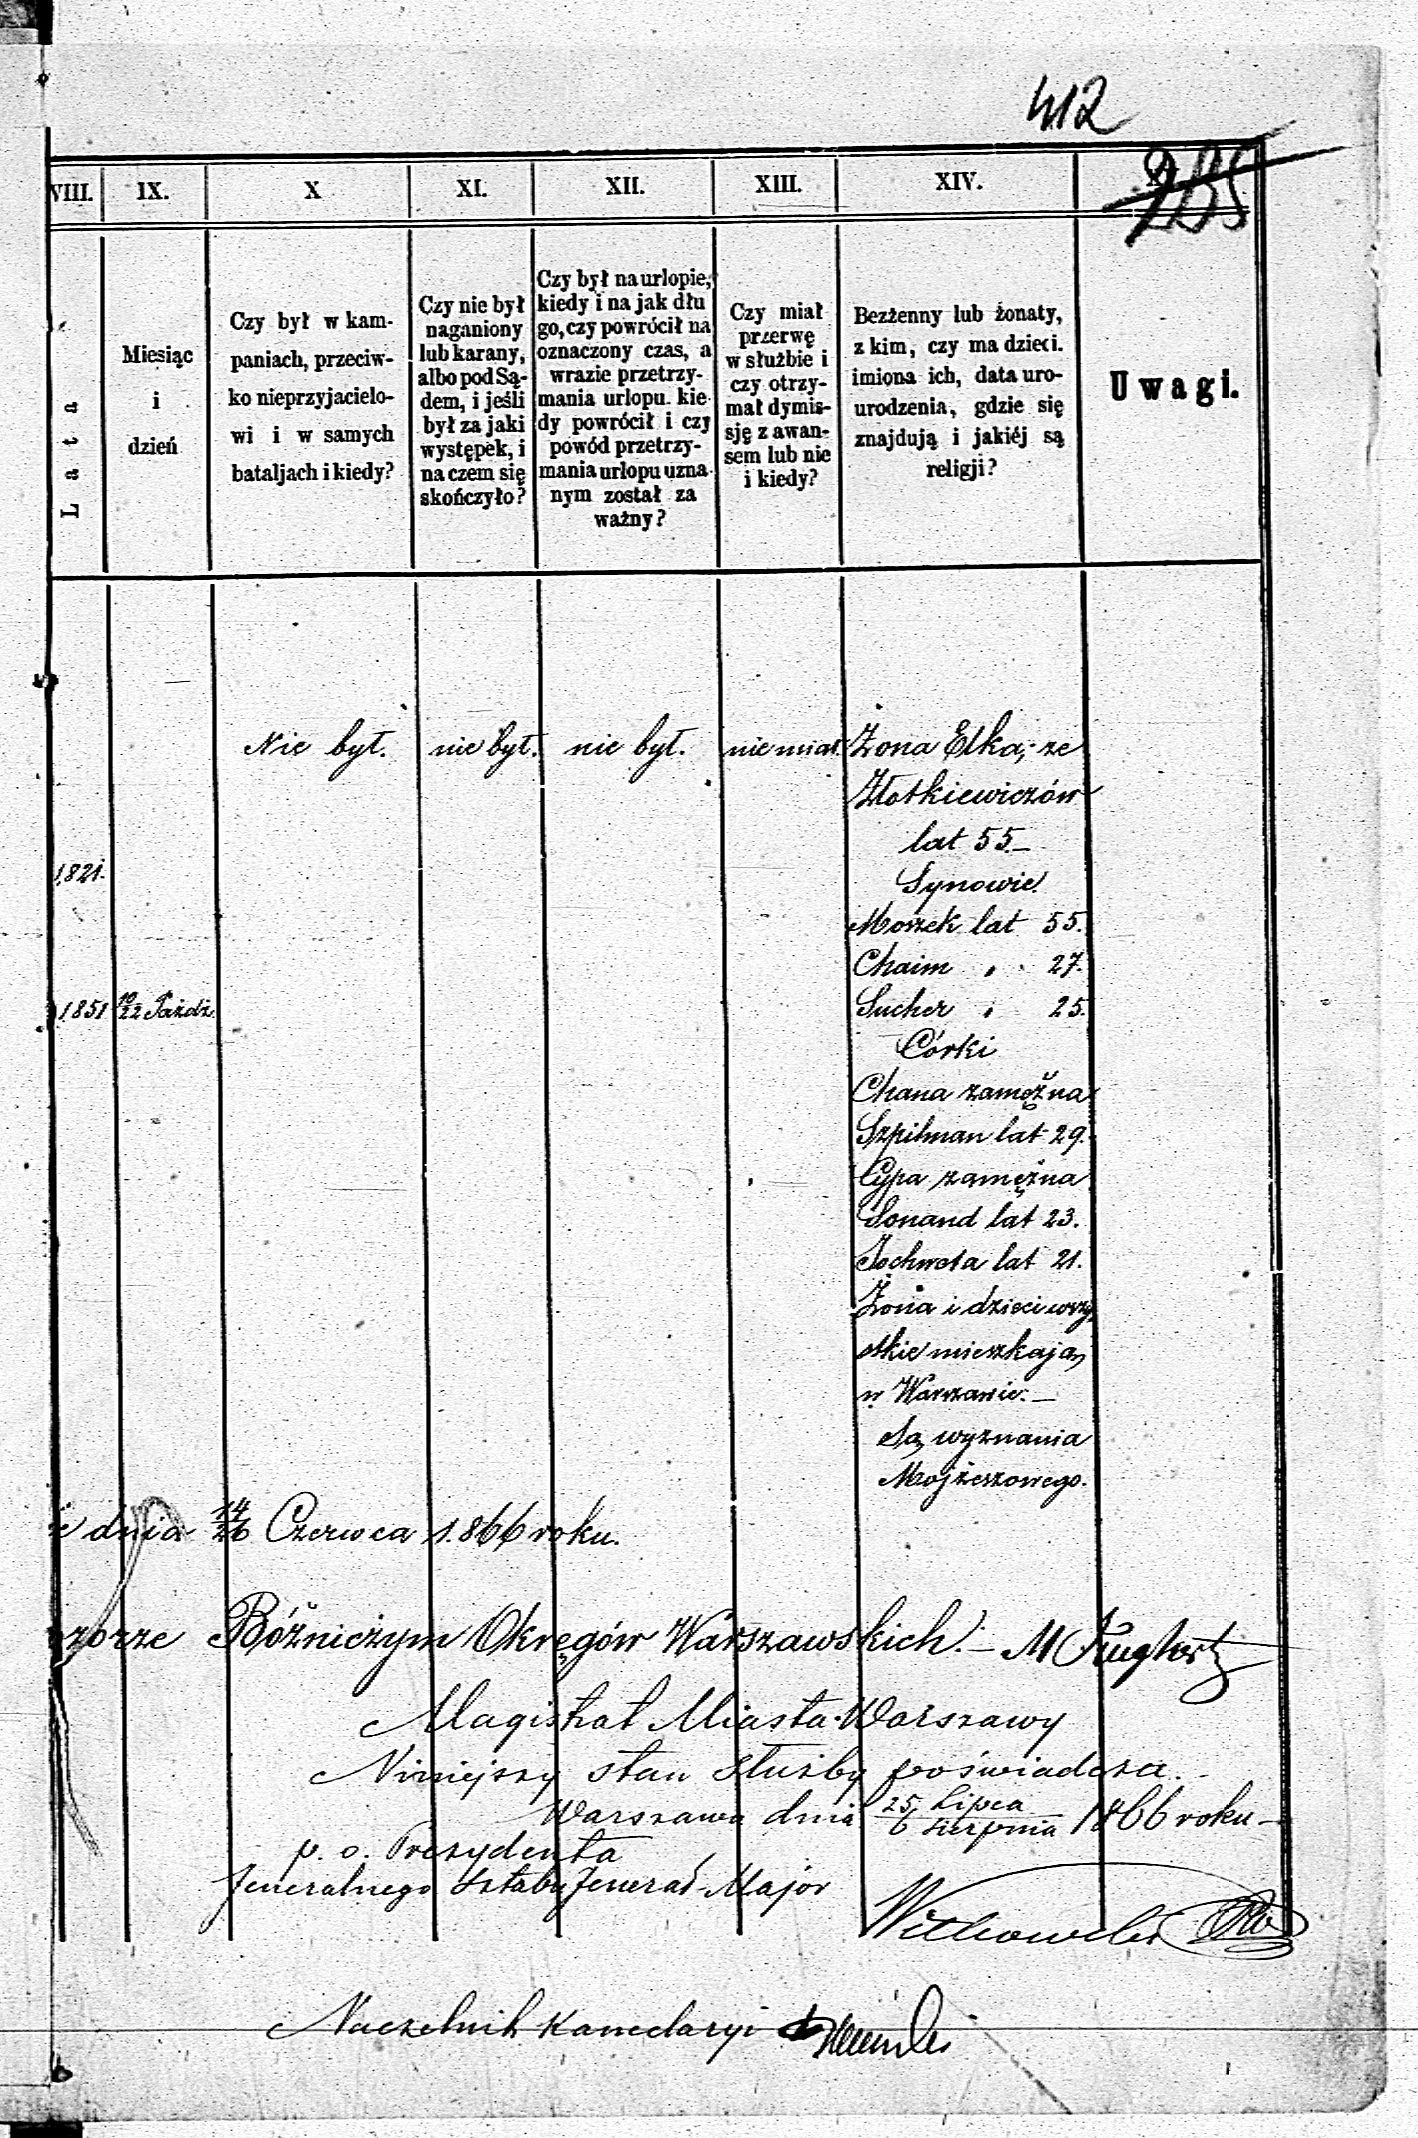 412
285
VIII. IX. X XI. XII. XIII. XIV.
Lata
Miesiąc
i
dzień
Czy był w kam-
paniach, przeciw-
ko nieprzyjacielo-
wi i w samych
bataljach i kiedy?
Czy nie był
naganiony
lub karany,
albo pod Są-
dem, i jeśli
był za jaki
występek, i
na czem się
skończyło?
Czy był na urlopie,
kiedy i na jak dłu
go, czy powrócił na
oznaczony czas, a
wrazie przetrzy-
mania urlopu. kie
dy powrócił i czy
powód przetrzy-
mania urlopu uzna-
nym został za
ważny?
Czy miał
przerwę
w służbie i
czy otrzy-
mał dymis-
sję z awan-
sem lub nie
i kiedy?
Bezżenny lub żonaty,
z kim, czy ma dzieci.
imiona ich, data uro-
urodzenia, gdzie się
znajdują i jakiéj są
religji?
Uwagi.
Nie był. nie był. nie był. nie miał. Żona Elka, ze
Złotkiewiczów
lat 55.
1821.
Synowie.
Moszek lat 55.
Chaim " 27.
1851 10/22 Paźdz. Sucher " 25.
Córki
Chana zamężna
Szpilman lat 29.
Cypa zamężna
Sonand lat 23.
Jochweta lat 21.
Żona i dzieci wszy
stkie mieszkają
w Warszawie.
Są wyznania
Mojżeszowego.
dnia 14/26 Czerwca 1866 roku.
zorze Bóżniczym Okręgów Warszawskich. M
Magistrat Miasta Warszawy
Niniejszy stan służby poświadcza.
Warszawa dnia 25 Lipca/6 Sierpnia 1866 roku
p. o. Prezydenta
Jeneralnego Sztabu Jenerał-Major
Witkowski
Naczelnik Kancelaryi